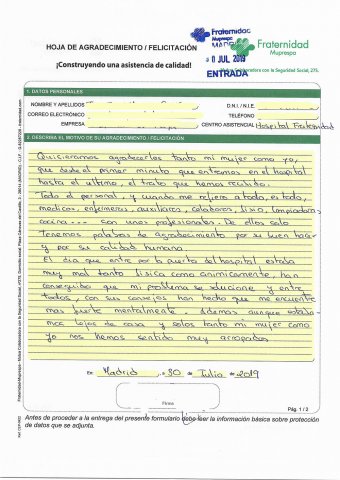 HOJA DE AGRADECIMIENTO / FELICITACIÓN
¡Construyendo una asistencia de calidad!
Fraternidad
Muprespa
Fraternidad
Muprespa
MADRID
30 JUL 2019
ENTRADA
Colaboradora con la Seguridad Social, 275.
1. DATOS PERSONALES
NOMBRE Y APELLIDOS
D.N.I. / N.I.E.
CORREO ELECTRÓNICO
TELÉFONO
EMPRESA
CENTRO ASISTENCIAL Hospital Fraternidad
2. DESCRIBA EL MOTIVO DE SU AGRADECIMIENTO / FELICITACIÓN
Quisieramos agradecerles tanto mi mujer como yo,
que desde el primer minuto que entramos en el hospital
hasta el ultimo, el trato que hemos recibido.
Todo el personal, y cuando me refiero a todo, es todo,
medicos, enfermeros, auxiliares, celadores, fisio, limpiadoras
cocina... son unos profesionales. De ellos solo
Tenemos palabras de agradecimiento por su buen hacer
y por su calidad humana.
El dia que entre por la puerta del hospital estaba
muy mal tanto fisica como animicamente, han
conseguido que mi problema se solucione y entre
todos, con sus consejos han hecho que me encuentre
mas fuerte mentalmente. Ademas aunque estaba-
mos lejos de casa y solos tanto mi mujer como
yo nos hemos sentido muy arropados
En Madrid, a 30 de Julio de 2019
Firma
Pág. 1 / 2
Antes de proceder a la entrega del presente formulario debe leer la información básica sobre protección
de datos que se adjunta.